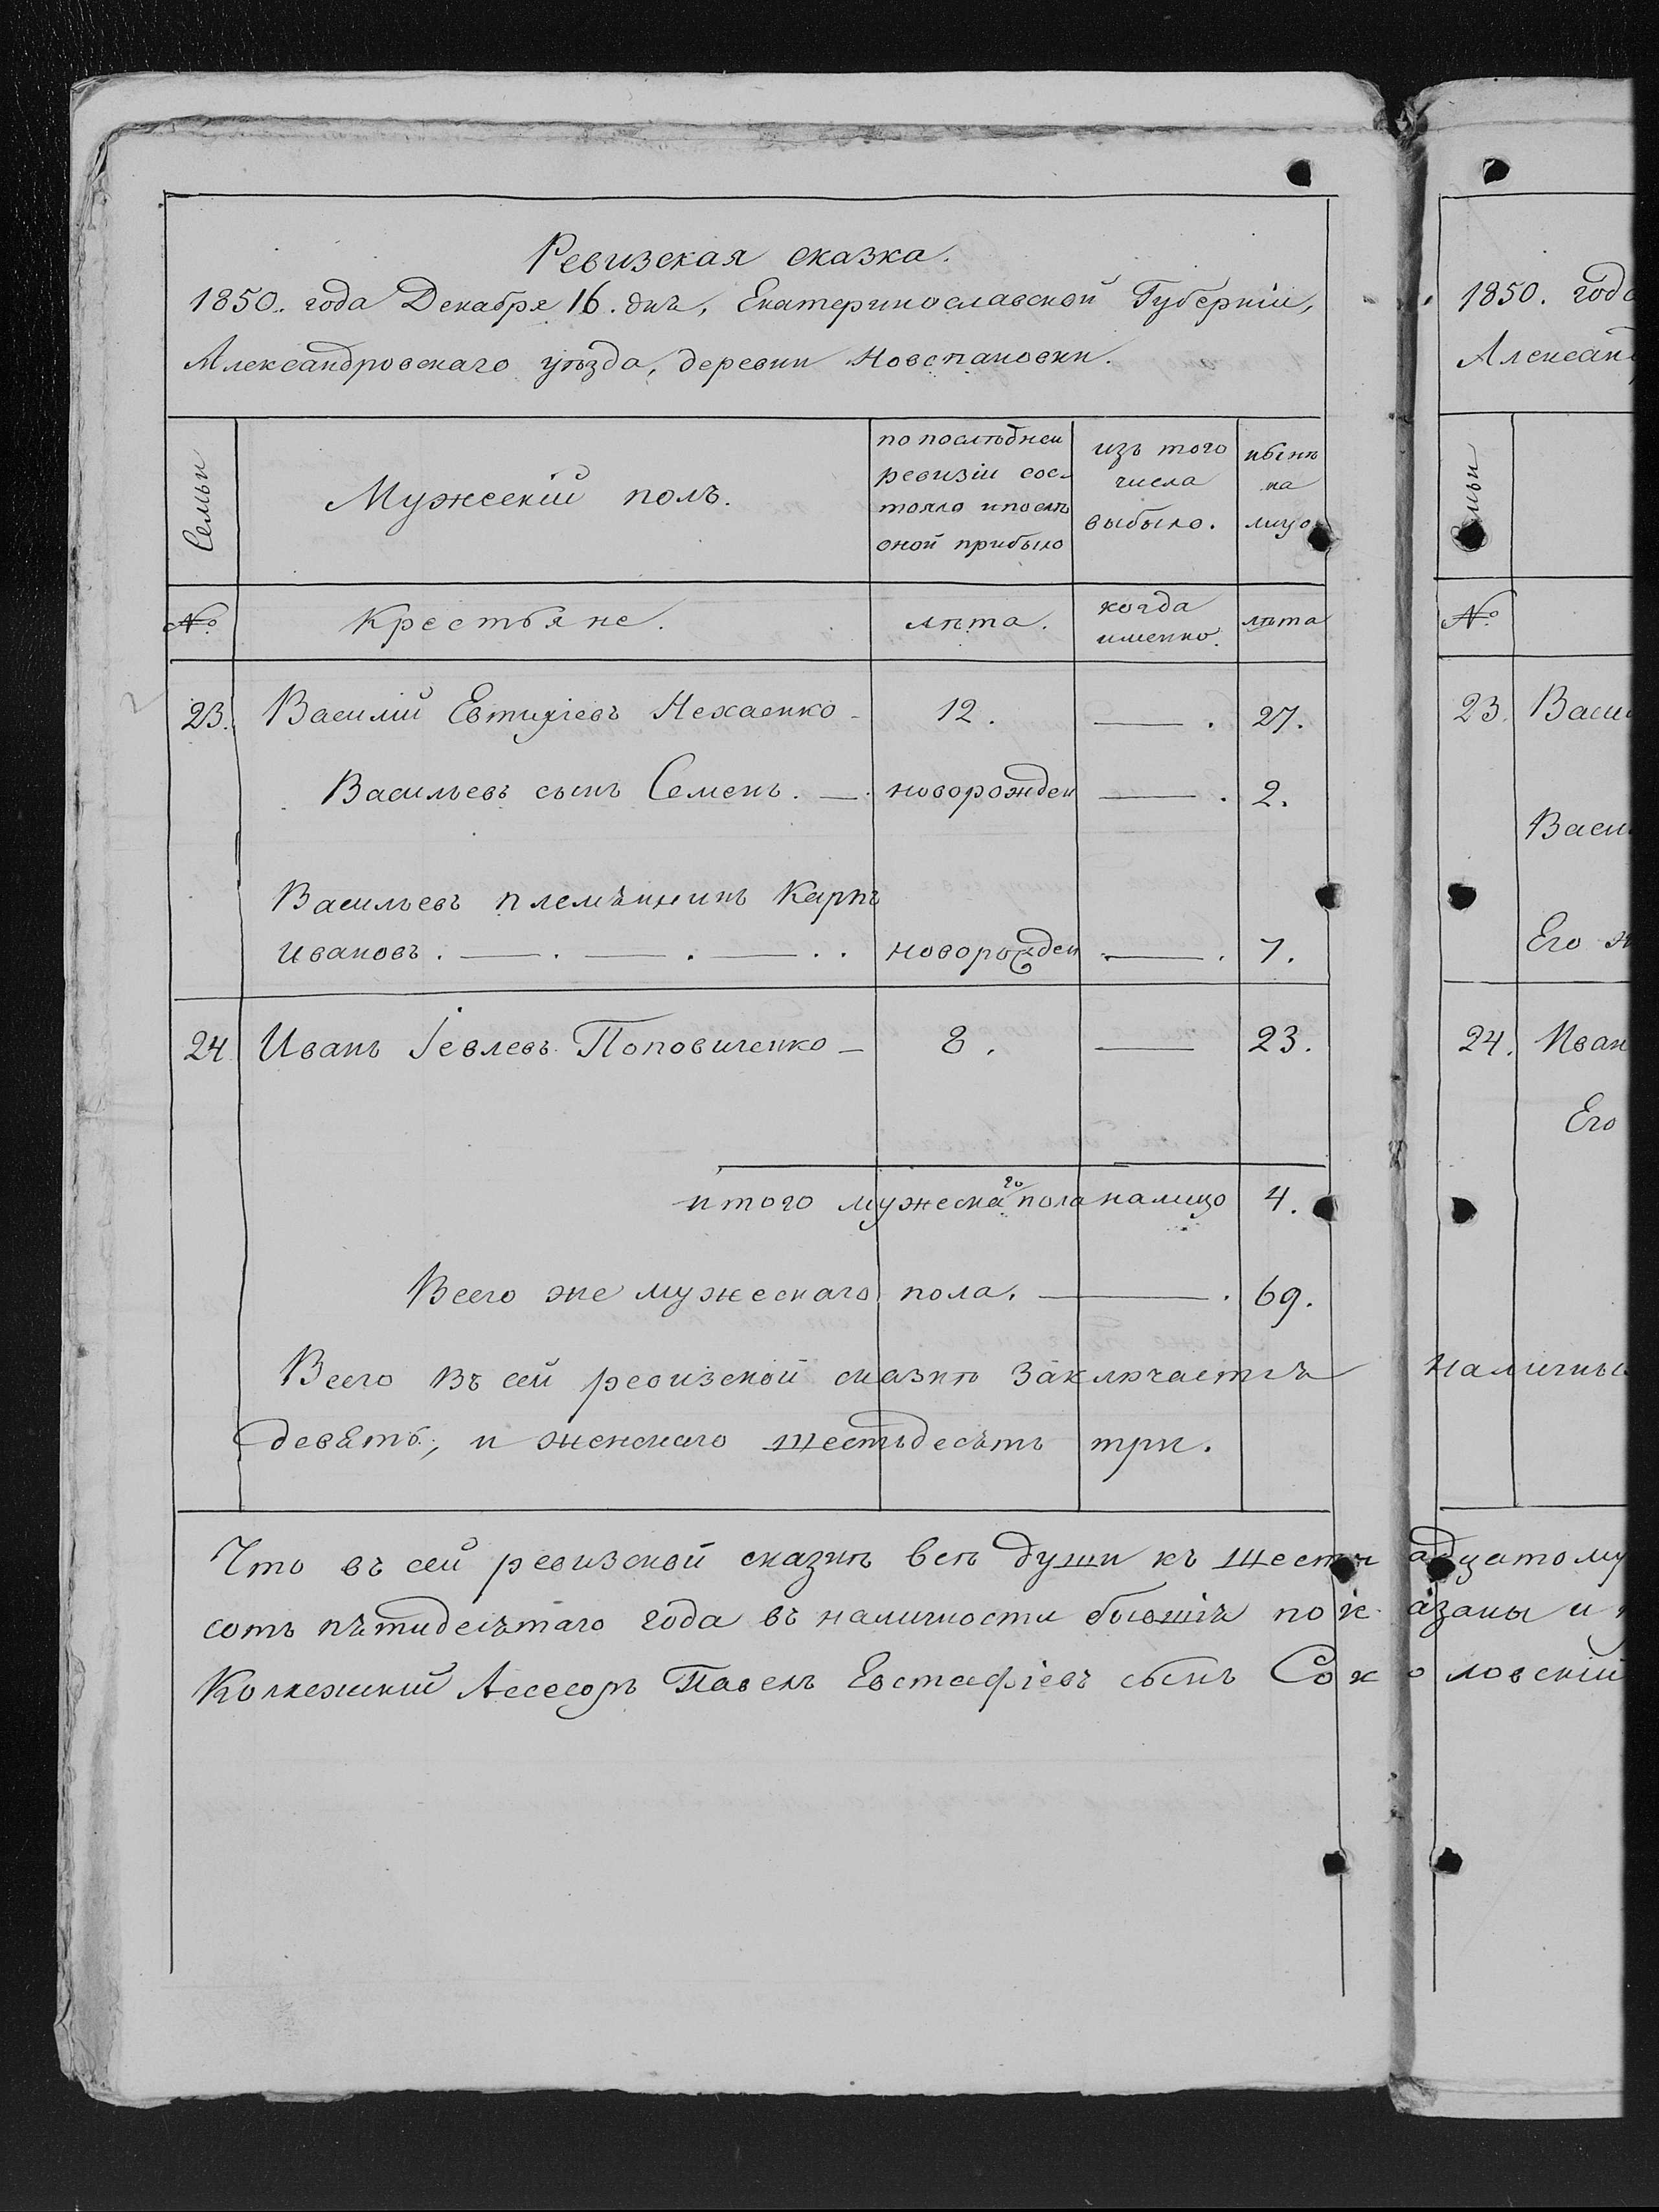 Ревизская сказка.
1850. года Декабря 16. дня, Екатеринославской Губерніи,
Александровскаго уѣзда, деревни Новопановки.
Семьи
Мужескій полъ.
по послѣдней ревизіи состояло и послѣ оной прибыло
изъ того числа выбыло.
нынѣ на лицо
№
Крестьяне.
лѣта.
когда именно.
лѣта
23. Василій Евтихіевъ Нехаенко 12. 27.
Васильевъ сынъ Семенъ. новорожден 2.
Васильевъ племянникъ Карпъ
Ивановъ. новорожден 7.
24 Иванъ Іевлевъ Поповиченко 8. 23.
итого мужескаго пола налицо 4.
Всего же мужескаго пола. 69.
Всего въ сей ревизской сказкѣ заключается
девять, и женскаго шестьдесять три.
Что въ сей ревизской сказкѣ всѣ души къ шестн
сотъ пятидесятаго года въ наличности бывшія пок
Колежский Асесоръ Павелъ Евстафіевъ сынъ Сок
1850. года
Александ
Семьи
№
23. Васи
Васи
Его
24. Иван
Его
наличны
адцатому
азаны и
оловскій